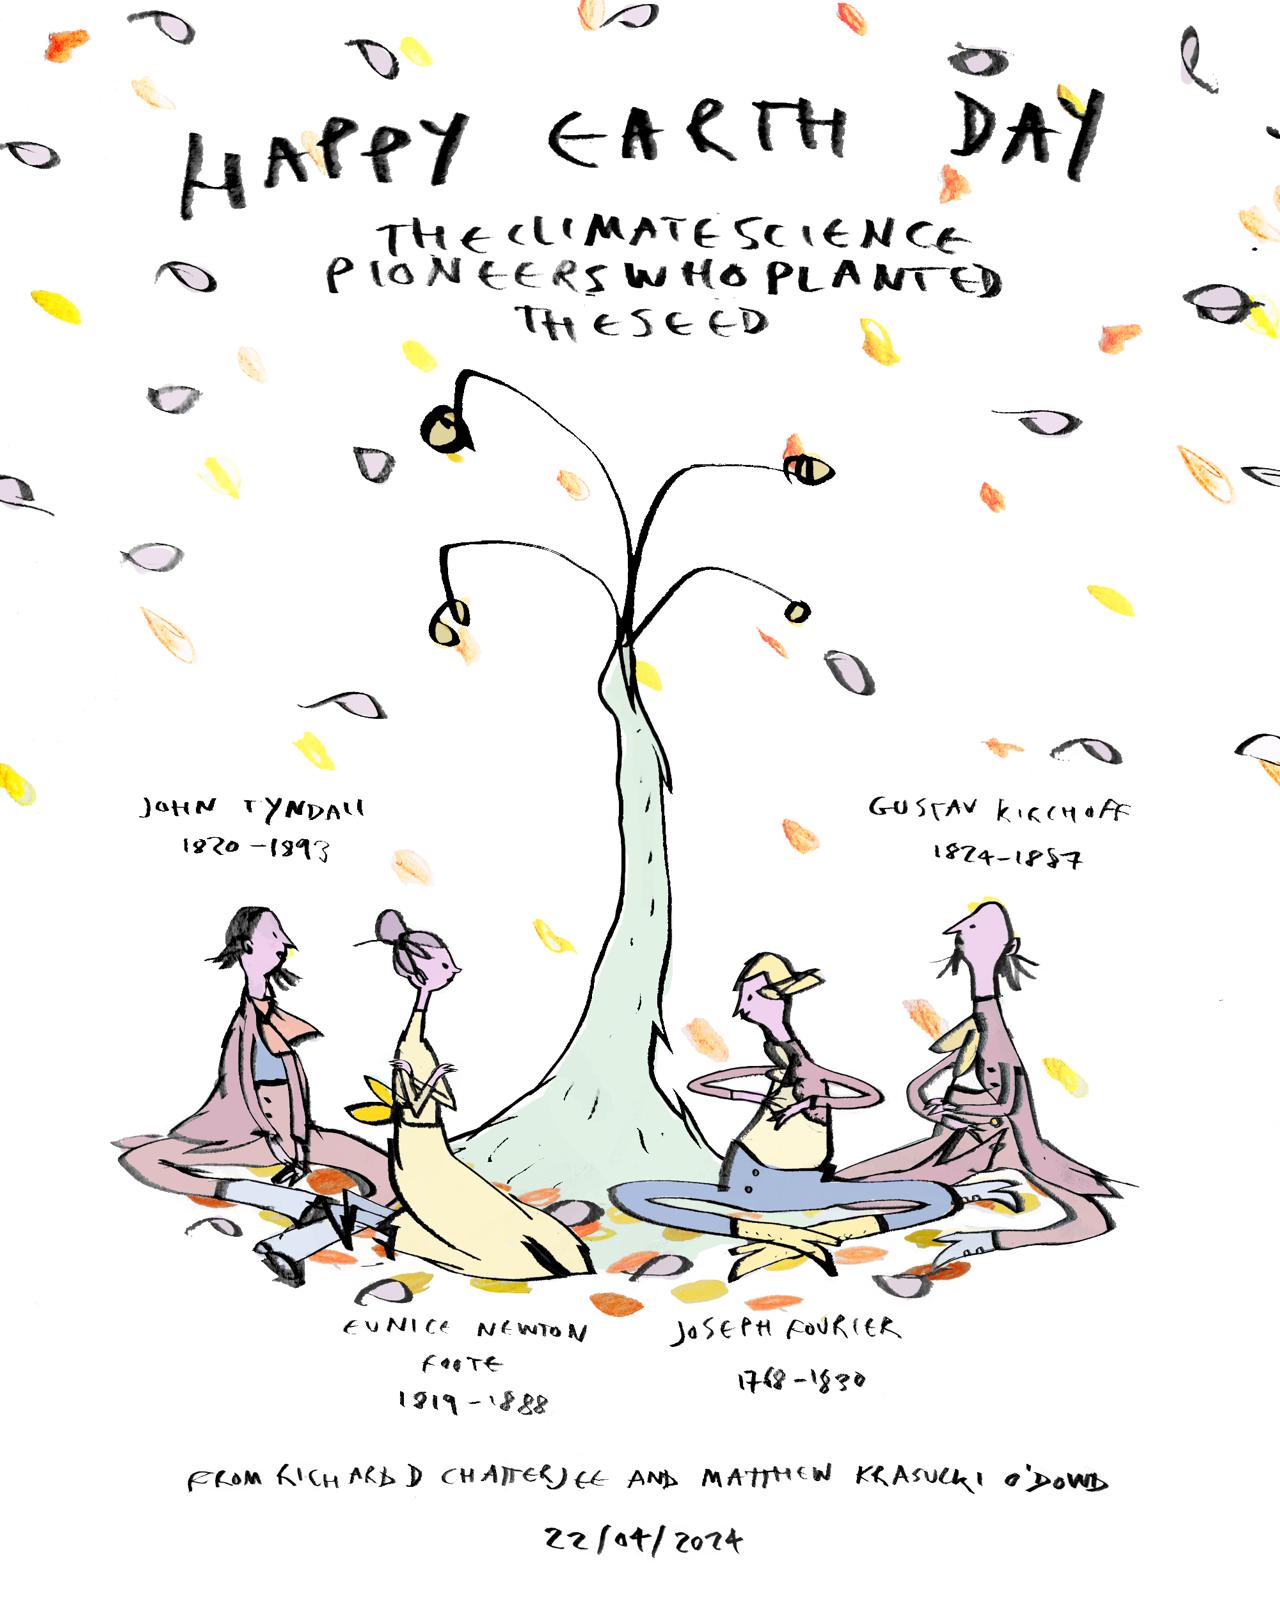 HAPPY EARTH DAY
THE CLIMATE SCIENCE
PIONEERS WHO PLANTED
THE SEED
JOHN TYNDALL
1820-1893
GUSTAV KIRCHOFF
1824-1887
EUNICE NEWTON
FOOTE
1819-1888
JOSEPH FOURIER
1768-1830
FROM RICHARD D CHATTERJEE AND MATTHEW KRASUCKI O'DOWD
22/04/2024